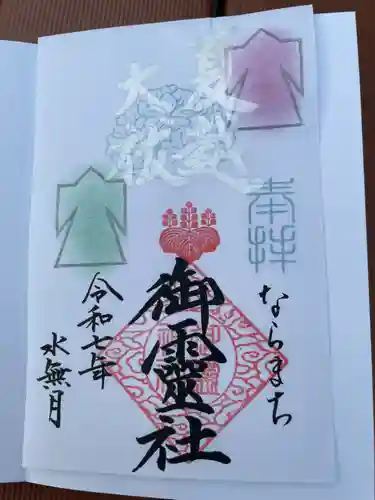 夏越
大祓
奉拝
ならまち
御霊社
令和七年
水無月